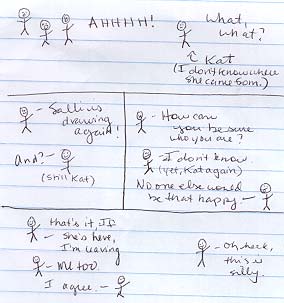 AHHHH!
What,
what?
Kat
(I don't know where
she came from.)
- Salli is
drawing
again!
And? -
(Still Kat)
- How can
you be sure
who you are?
- I don't know
(yet, Kat again)
No one else would
be that happy -
that's it, If
- she's here,
I'm leaving
- me too.
I agree. -
- Oh heck,
this is
silly.